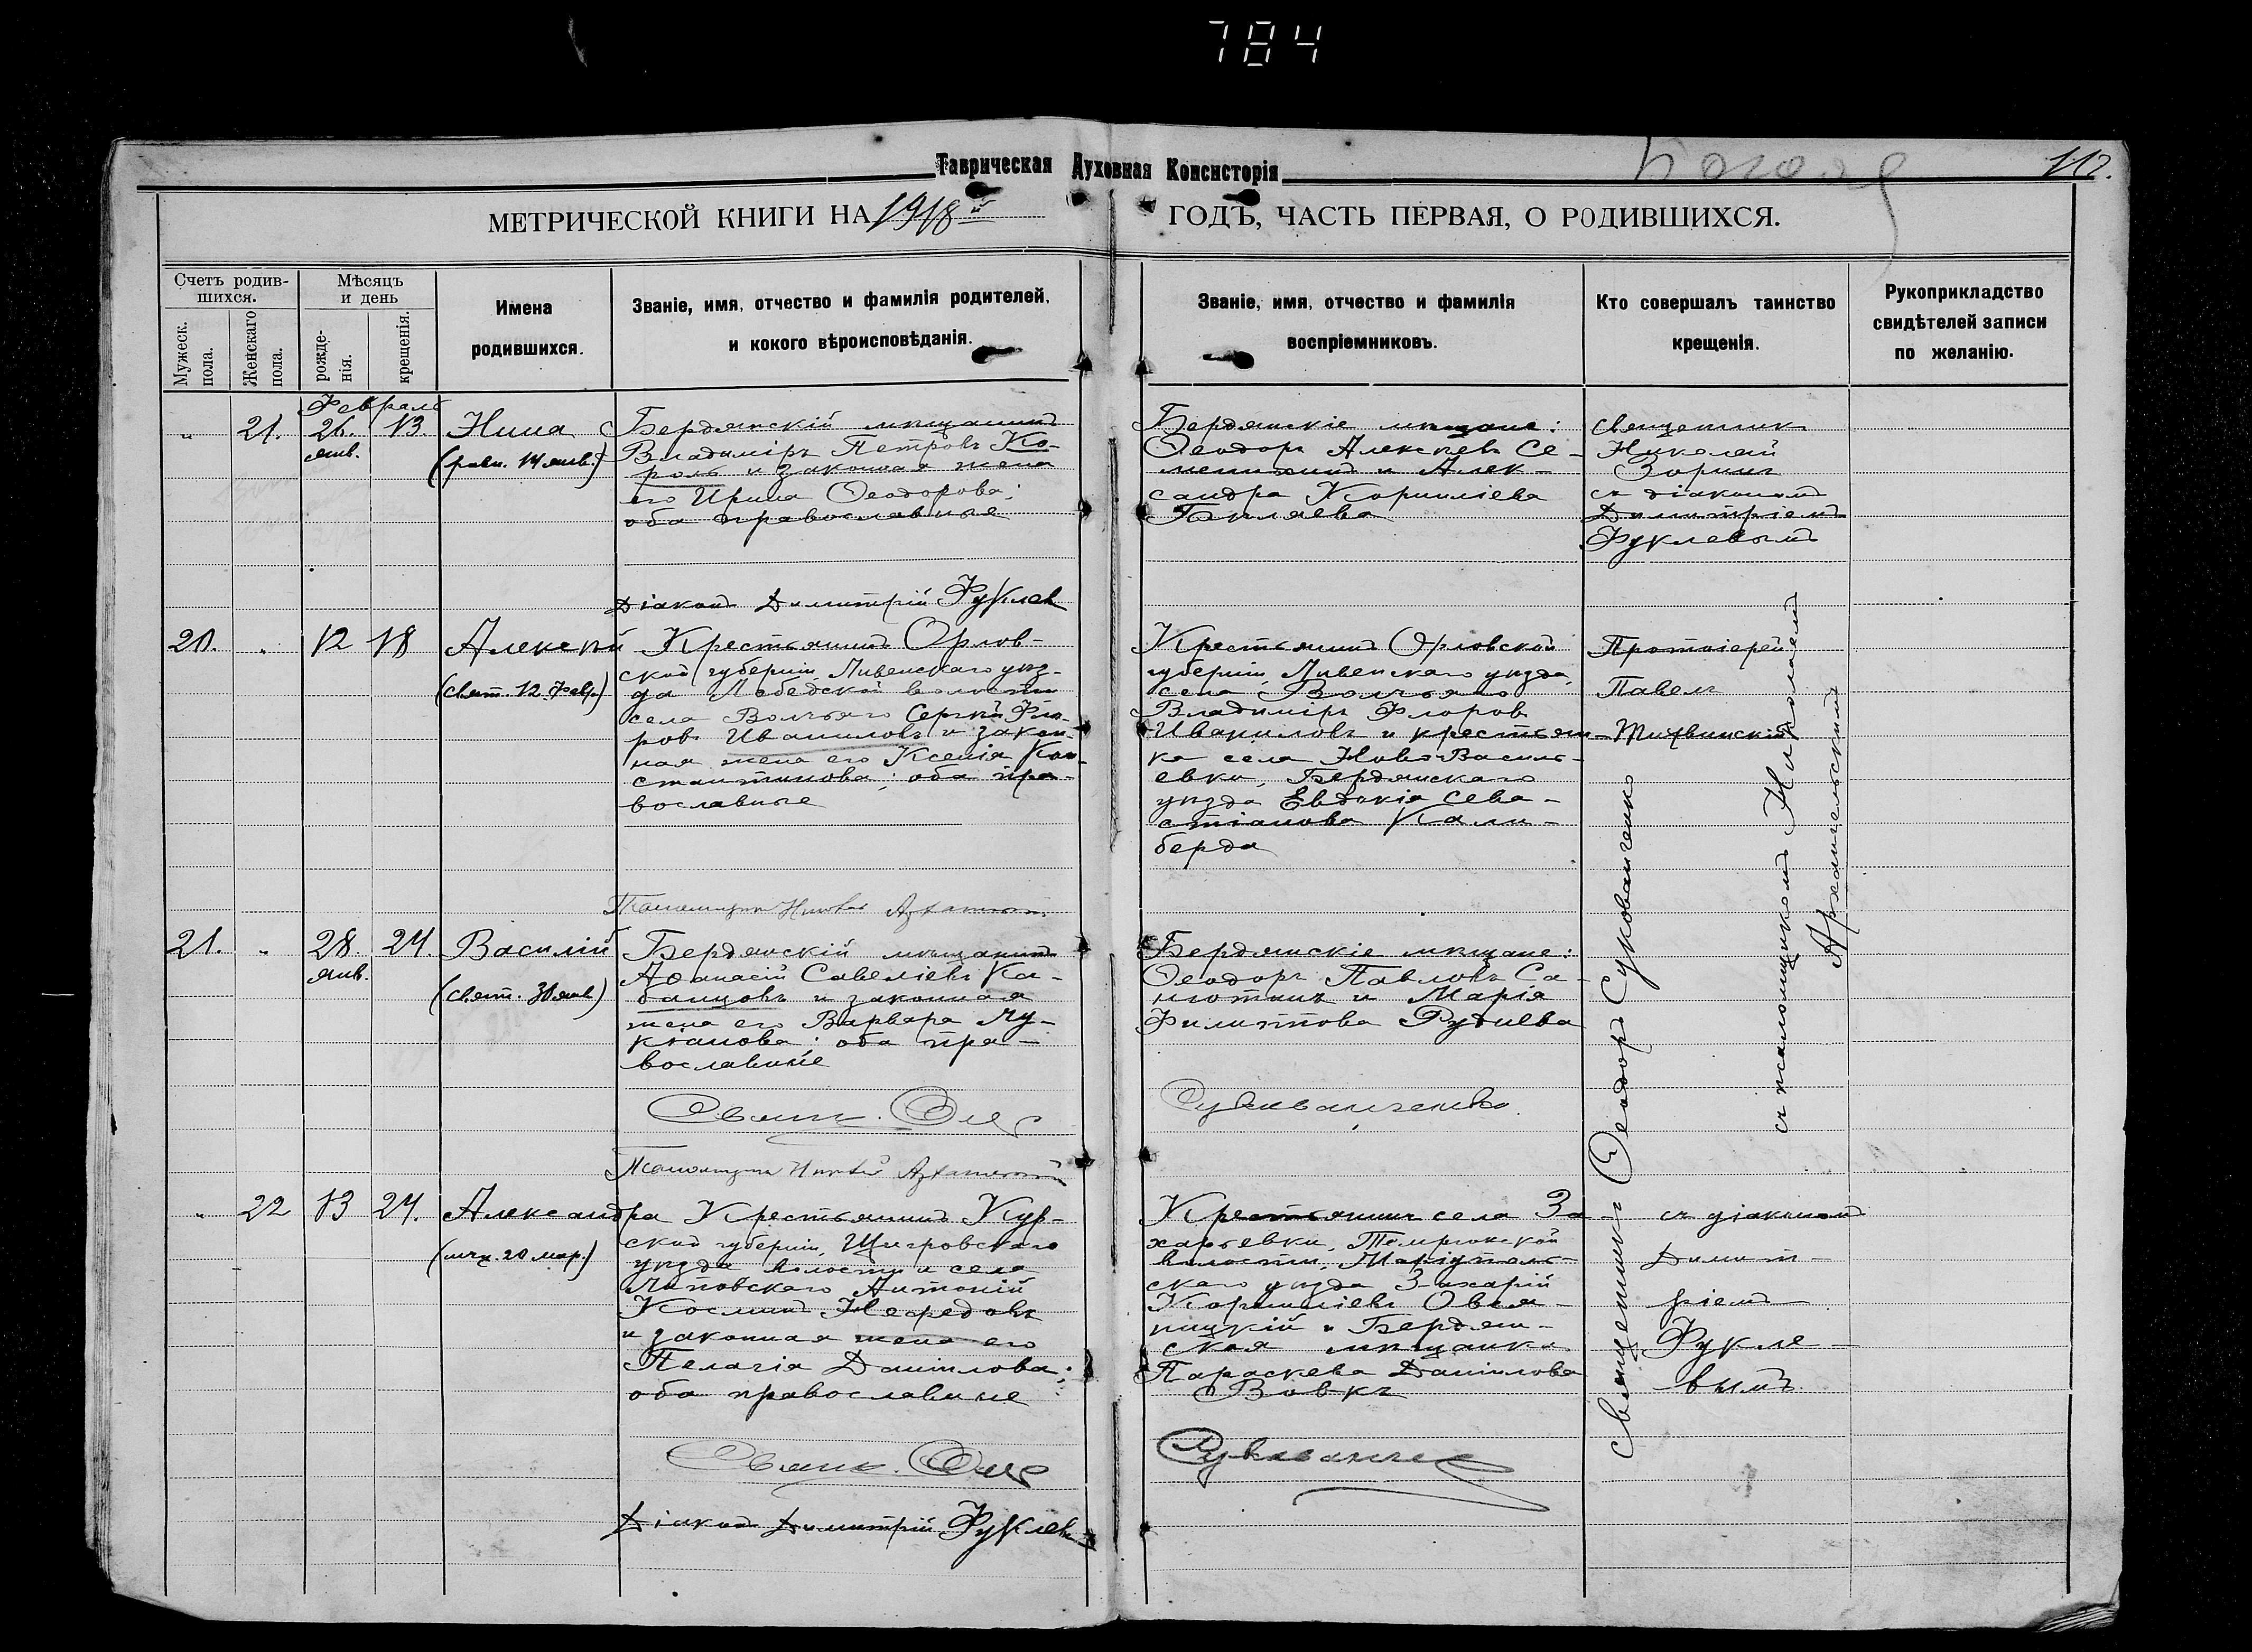 784
Таврическая Духовная Консисторія
112.
МЕТРИЧЕСКОЙ КНИГИ НА 1918й ГОДЪ, ЧАСТЬ ПЕРВАЯ, О РОДИВШИХСЯ.
Счетъ родив-
шихся.
Мужеск.
пола.
Женскаго
пола.
Мѣсяцъ
и день
рожде-
нія.
крещенія.
Имена
родившихся.
Званіе, имя, отчество и фамилія родителей,
и кокого вѣроисповѣданія.
Званіе, имя, отчество и фамилія
воспріемниковъ.
Кто совершалъ таинство
крещенія.
Рукоприкладство
свидѣтелей записи
по желанію.
Февраль
" 21. 26. 13. Нина
янв.
(равн. 14 янв.)
Бердянскій мѣщанинъ
Владиміръ Петровъ Ко-
роль и законная жена
его Ирина Ѳеодорова;
оба православные
Бердянскіе мѣщане:
Ѳеодоръ Алексѣевъ Се-
менихинъ и Алек-
сандра Корниліева
Бѣляева
Священникъ
Николай
Зоринъ
съ діакономъ
Димитріемъ
Руклевымъ
Діаконъ Димитрій Руклев
20. " 12 18 Алексѣй
(свят. 12 февр.)
Крестьянинъ Орлов-
ской губерніи, Ливенскаго уѣз-
да Лебедской волости
села Волчьяго Сергѣй Фло-
ровъ Иваниловъ и закон-
ная жена его Ксенія Кон-
стантинова; оба пра-
вославные
Крестьянинъ Орловской
губерніи, Ливенскаго уѣзда,
села Волчьяго
Владиміръ Флоровъ
Иваниловъ и крестьян-
ка села Ново-Василь-
евки, Бердянскаго
уѣзда Евдокія Сева-
стіанова Кали-
берда
Протоіерей
Павелъ
Тихвинскій
съ псаломщикомъ Николаемъ
Архангельскимъ
Псаломщикъ Николай
21. " 28. 24. Василій
янв.
(свят. 30 янв)
Бердянскій мѣщанинъ
Аѳанасій Савеліевъ Ка-
банцовъ и законная
жена его Варвара Лу-
кіанова; оба пра-
вославные
Бердянскіе мѣщане:
Ѳеодоръ Павловъ Са-
мотинъ и Марія
Филиппова Руднева
Священникъ Ѳеодоръ Сукованченко
Свящ. Ѳео Сукованченко
Псаломщикъ Николай
" 22 13 24. Александра
(мчц. 20 мар.)
Крестьянинъ Кур-
ской губерніи, Щигровскаго
уѣзда волости и села
Липовскаго Антоній
Косминъ Нефедовъ
и законная жена его
Пелагія Даніилова;
оба православные
Крестьянинъ села За-
харьевки, Темрюкской
волости, Маріуполь-
скаго уѣзда Захарій
Корниліевъ Овся-
ницкій и Бердян-
ская мѣщанка
Параскева Даніилова
Вовкъ
съ діакономъ
Димит-
ріемъ
Рукле-
вымъ
Свящ. Ѳео Сукованче
Діаконъ Димитрій Руклевъ